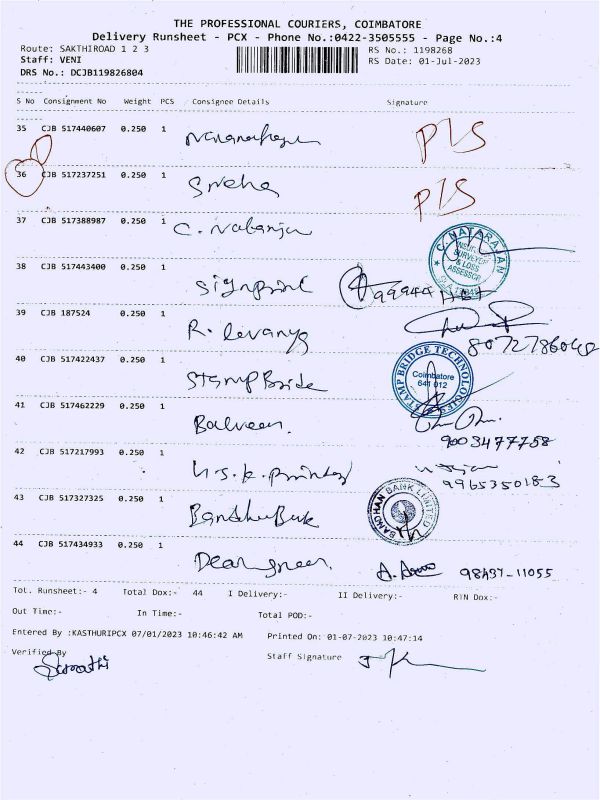 THE PROFESSIONAL COURIERS, COIMBATORE
Delivery Runsheet - PCX - Phone No.:0422-3505555 - Page No.:4
Route: SAKTHIROAD 1 2 3 RS No.: 1198268
Staff: VENI RS Date: 01-Jul-2023
DRS No.: DCJB119826804
S No Consignment No Weight PCS Consignee Details Signature
35 CJB 517440607 0.250 1 PIS
36 CJB 517237251 0.250 1 Sneha PIS
37 CJB 517388987 0.250 1 C. Natarajan C. NATARAJAN
SURVEYOR
& LOSS
ASSESSOR
38 CJB 517443400 0.250 1 Signprint
39 CJB 187524 0.250 1 R. Devanya
8072786048
40 CJB 517422437 0.250 1 StampBride STAMP BRIDGE TECHNOLOGIES
Coimbatore
641 012
41 CJB 517462229 0.250 1 Balveen.
9003477758
42 CJB 517217993 0.250 1 U.S.K. Printed
9965350183
43 CJB 517327325 0.250 1 BANDHAN BANK LIMITED
44 CJB 517434933 0.250 1 Deargreen. 98437-11055
Tot. Runsheet:- 4 Total Dox:- 44 I Delivery:- II Delivery:- RTN Dox:-
Out Time:- In Time:- Total POD:-
Entered By :KASTHURIPCX 07/01/2023 10:46:42 AM Printed On: 01-07-2023 10:47:14
Verified By Staff Signature
Sumathi